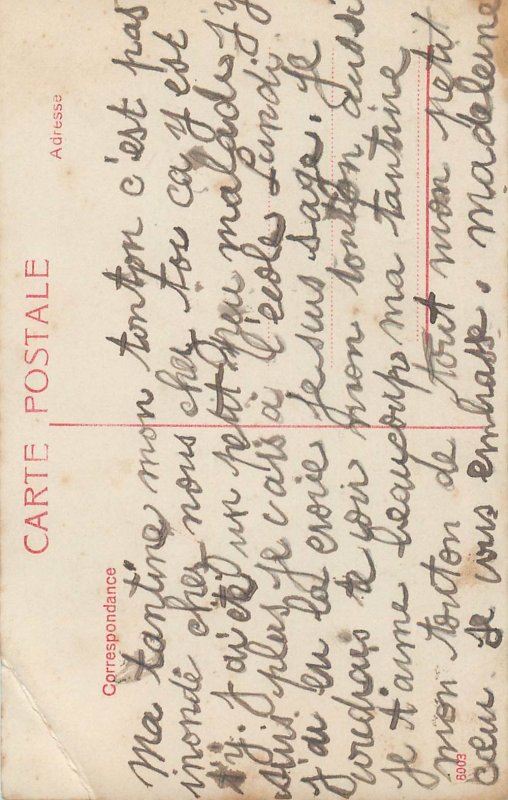 CARTE POSTALE
Correspondance
Adresse
Ma tantine mon tonton c'est pas
inondé chez nous chez toi ça y est
ty. J'ai été un petit peu malade j'y
suis plus je vais a l'école Lundi
J'ai eu la croix Je suis sage. Je
voudrais te voir mon tonton aussi
Je t'aime beaucoup ma tantine
mon tonton de tout mon petit
cœur. Je vous embrasse. Madeleine
6003